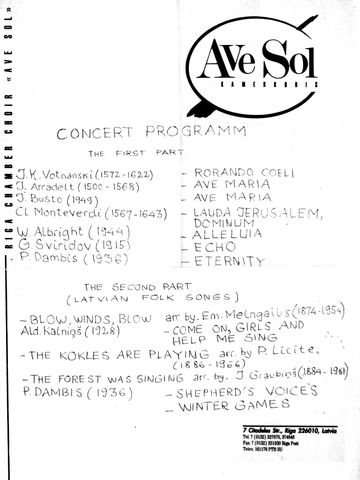 RIGA CHAMBER CHOIR «AVE SOL»
AVE SOL
KAMERKORIS
CONCERT PROGRAMM
THE FIRST PART
J.K. Votnanski (1572-1622) - RORANDO COELI
J. Arradelt (1500-1568) - AVE MARIA
J. Busto (1949) - AVE MARIA
Cl. Monteverdi (1567-1643) - LAUDA JERUSALEM,
DOMINUM
W. Albright (1944) - ALLELUIA
G. Sviridov (1915) - ECHO
P. Dambis (1936) - ETERNITY
THE SECOND PART
(LATVIAN FOLK SONGS)
- BLOW, WINDS, BLOW arr. by Em. Melngailis (1874-1954)
Ald. Kalniņš (1928) - COME ON, GIRLS AND
HELP ME SING
- THE KOKLES ARE PLAYING arr. by P. Licite,
(1886-1966)
- THE FOREST WAS SINGING arr. by J. Graubiņš (1884-1961)
P. DAMBIS (1936) - SHEPHERD'S VOICE'S
- WINTER GAMES
7 Citadeles Str., Riga 226010, Latvia
Tel. 7 (0132) 327670, 374848